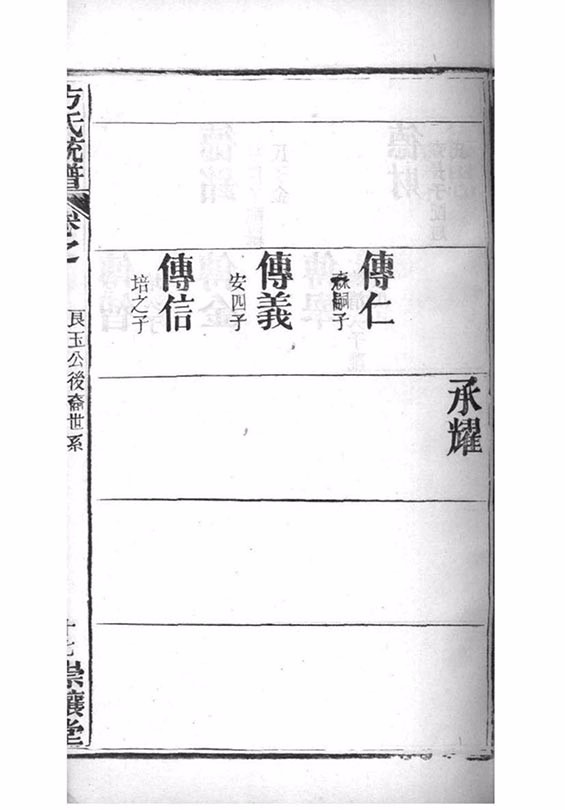 承耀
傳仁
森嗣子
傳義
安四子
傳信
培之子
方氏統譜
卷之
良玉公後裔世系
十七
崇讓堂